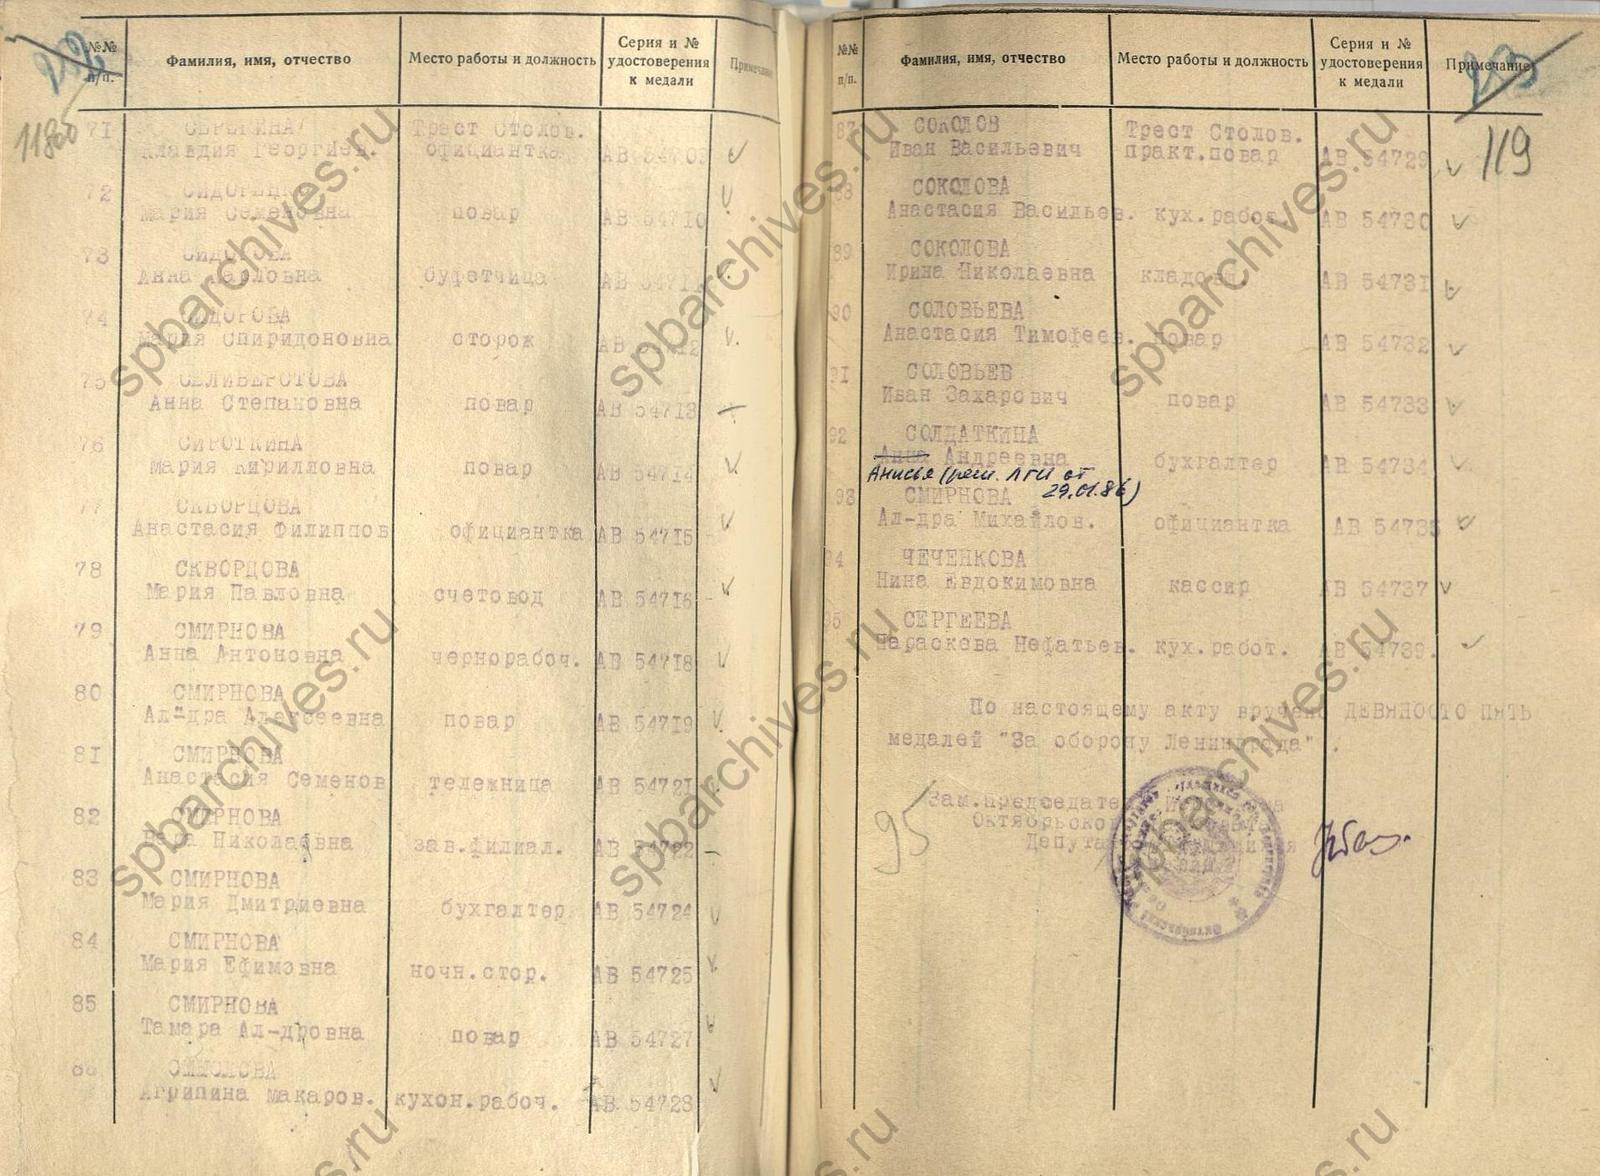 №№ п/п.
Фамилия, имя, отчество
Место работы и должность
Серия и № удостоверения к медали
Примечание
118об
71 СЕРЕГИНА Трест Столов.
Клавдия Георгиев. официантка АВ 54709
72
Мария Семеновна повар АВ 54710
73
Анна Карловна буфетчица АВ 54711
74 СИДОРОВА
Мария Спиридоновна сторож АВ 54712
75 СЕЛИВЕРСТОВА
Анна Степановна повар АВ 54713
76 СИРОТКИНА
Мария Кирилловна повар АВ 54714
77 СКВОРЦОВА
Анастасия Филиппов официантка АВ 54715
78 СКВОРЦОВА
Мария Павловна счетовод АВ 54716
79 СМИРНОВА
Анна Антоновна чернорабоч. АВ 54718
80 СМИРНОВА
Ал-дра Алексеевна повар АВ 54719
81 СМИРНОВА
Анастасия Семенов тележница АВ 54721
82 СМИРНОВА
Николаевна зав.филиал. АВ 54722
83 СМИРНОВА
Мария Дмитриевна бухгалтер АВ 54724
84 СМИРНОВА
Мария Ефимовна ночн.стор. АВ 54725
85 СМИРНОВА
Тамара Ал-дровна повар АВ 54727
86
Агрипина Макаров. кухон.рабоч. АВ 54728
№№ п/п.
Фамилия, имя, отчество
Место работы и должность
Серия и № удостоверения к медали
Примечание
119
87 СОКОЛОВ Трест Столов.
Иван Васильевич практ.повар АВ 54729
88 СОКОЛОВА
Анастасия Васильев. кух.работ. АВ 54730
89 СОКОЛОВА
Ирина Николаевна кладовщ. АВ 54731
90 СОЛОВЬЕВА
Анастасия Тимофеев. повар АВ 54732
91 СОЛОВЬЕВ
Иван Захарович повар АВ 54733
92 СОЛДАТКИНА
Анна Андреевна бухгалтер АВ 54734
Анисья (реш. ЛГИ от
29.01.86)
93 СМИРНОВА
Ал-дра Михайлов. официантка АВ 54735
94 ЧЕЧЕНКОВА
Нина Евдокимовна кассир АВ 54737
95 СЕРГЕЕВА
Параскева Нефатьев. кух.работ. АВ 54739.
По настоящему акту вручено ДЕВЯНОСТО ПЯТЬ
медалей "За оборону Ленинграда".
95
Зам.председателя
Октябрьского
Депутатов
spbarchives.ru
spbarchives.ru
spbarchives.ru
spbarchives.ru
spbarchives.ru
spbarchives.ru